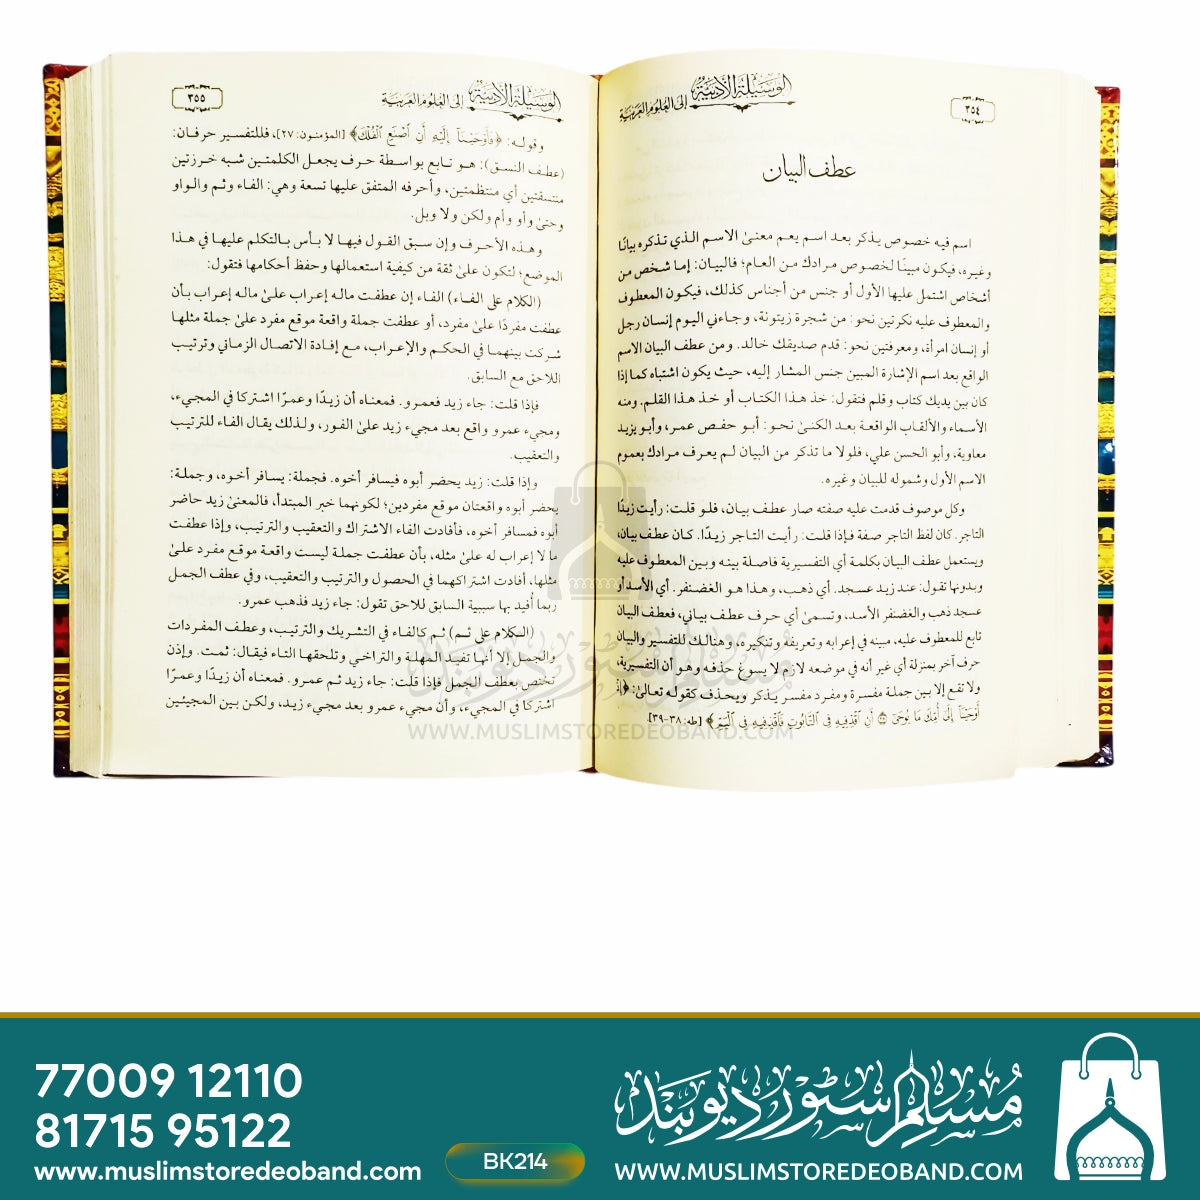 ٣٥٤
الوسيلة الأدبية إلى العلوم العربية
عطف البيان
اسم فيه خصوص يذكر بعد اسم يعم معنىٰ الاسم الذي تذكره بيانًا
وغيره، فيكون مبينًا لخصوص مرادك من العام؛ فالبيان: إما شخص من
أشخاص اشتمل عليها الأول أو جنس من أجناس كذلك، فيكون المعطوف
والمعطوف عليه نكرتين نحو: من شجرة زيتونة، وجاءني اليوم إنسان رجل
أو إنسان امرأة، ومعرفتين نحو: قدم صديقك خالد. ومن عطف البيان الاسم
الواقع بعد اسم الإشارة المبين جنس المشار إليه، حيث يكون اشتباه كما إذا
كان بين يديك كتاب وقلم فتقول: خذ هذا الكتاب أو خذ هذا القلم. ومنه
الأسماء والألقاب الواقعة بعد الكنىٰ نحو: أبو حفص عمر، وأبو يزيد
معاوية، وأبو الحسن علي، فلولا ما تذكر من البيان لم يعرف مرادك بعموم
الاسم الأول وشموله للبيان وغيره.
وكل موصوف قدمت عليه صفته صار عطف بيان، فلو قلت: رأيت زيدًا
التاجر. كان لفظ التاجر صفة فإذا قلت: رأيت التاجر زيدًا. كان عطف بيان،
ويستعمل عطف البيان بكلمة أي التفسيرية فاصلة بينه وبين المعطوف عليه
وبدونها تقول: عند زيد عسجد. أي ذهب، وهذا هو الغضنفر. أي الأسد أو
عسجد ذهب والغضنفر الأسد، وتسمىٰ أي حرف عطف بياني، فعطف البيان
تابع للمعطوف عليه، مبينه في إعرابه وتعريفه وتنكيره، وهنالك للتفسير والبيان
حرف آخر بمنزلة أي غير أنه في موضعه لازم لا يسوغ حذفه وهو أن التفسيرية،
ولا تقع إلا بين جملة مفسرة ومفرد مفسر يذكر ويحذف كقوله تعالىٰ: ﴿إِذْ
أَوْحَيْنَا إِلَىٰ أُمِّكَ مَا يُوحَىٰ ۝ أَنِ اقْذِفِيهِ فِي التَّابُوتِ فَاقْذِفِيهِ فِي الْيَمِّ﴾ [طه: ٣٨-٣٩].
الوسيلة الأدبية إلى العلوم العربية
٣٥٥
وقوله: ﴿فَأَوْحَيْنَا إِلَيْهِ أَنِ اصْنَعِ الْفُلْكَ﴾ [المؤمنون: ٢٧]، فللتفسير حرفان:
(عطف النسق): هو تابع بواسطة حرف يجعل الكلمتين شبه خرزتين
متسقتين أي منتظمتين، وأحرفه المتفق عليها تسعة وهي: الفاء وثم والواو
وحتىٰ وأو وأم ولكن ولا وبل.
وهذه الأحرف وإن سبق القول فيها لا بأس بالتكلم عليها في هذا
الموضع؛ لتكون علىٰ ثقة من كيفية استعمالها وحفظ أحكامها فتقول:
(الكلام على الفاء) الفاء إن عطفت ماله إعراب علىٰ ماله إعراب بأن
عطفت مفردًا علىٰ مفرد، أو عطفت جملة واقعة موقع مفرد علىٰ جملة مثلها
شركت بينهما في الحكم والإعراب، مع إفادة الاتصال الزماني وترتيب
اللاحق مع السابق.
فإذا قلت: جاء زيد فعمرو. فمعناه أن زيدًا وعمرًا اشتركا في المجيء،
ومجيء عمرو واقع بعد مجيء زيد علىٰ الفور، ولذلك يقال الفاء للترتيب
والتعقيب.
وإذا قلت: زيد يحضر أبوه فيسافر أخوه. فجملة: يسافر أخوه، وجملة:
يحضر أبوه واقعتان موقع مفردين؛ لكونهما خبر المبتدأ، فالمعنىٰ زيد حاضر
أبوه فمسافر أخوه، فأفادت الفاء الاشتراك والتعقيب والترتيب، وإذا عطفت
ما لا إعراب له علىٰ مثله، بأن عطفت جملة ليست واقعة موقع مفرد علىٰ
مثلها، أفادت اشتراكهما في الحصول والترتيب والتعقيب، وفي عطف الجمل
ربما أُفيد بها سببية السابق للاحق تقول: جاء زيد فذهب عمرو.
(الكلام على ثم) ثم كالفاء في التشريك والترتيب، وعطف المفردات
والجمل إلا أنها تفيد المهلة والتراخي وتلحقها التاء فيقال: ثمت. وإذن
تختص بعطف الجمل فإذا قلت: جاء زيد ثم عمرو. فمعناه أن زيدًا وعمرًا
اشتركا في المجيء، وأن مجيء عمرو بعد مجيء زيد، ولكن بين المجيئين
مسلم سٹور دیوبند
WWW.MUSLIMSTOREDEOBAND.COM
77009 12110
81715 95122
www.muslimstoredeoband.com
BK214
مسلم سٹور دیوبند
WWW.MUSLIMSTOREDEOBAND.COM